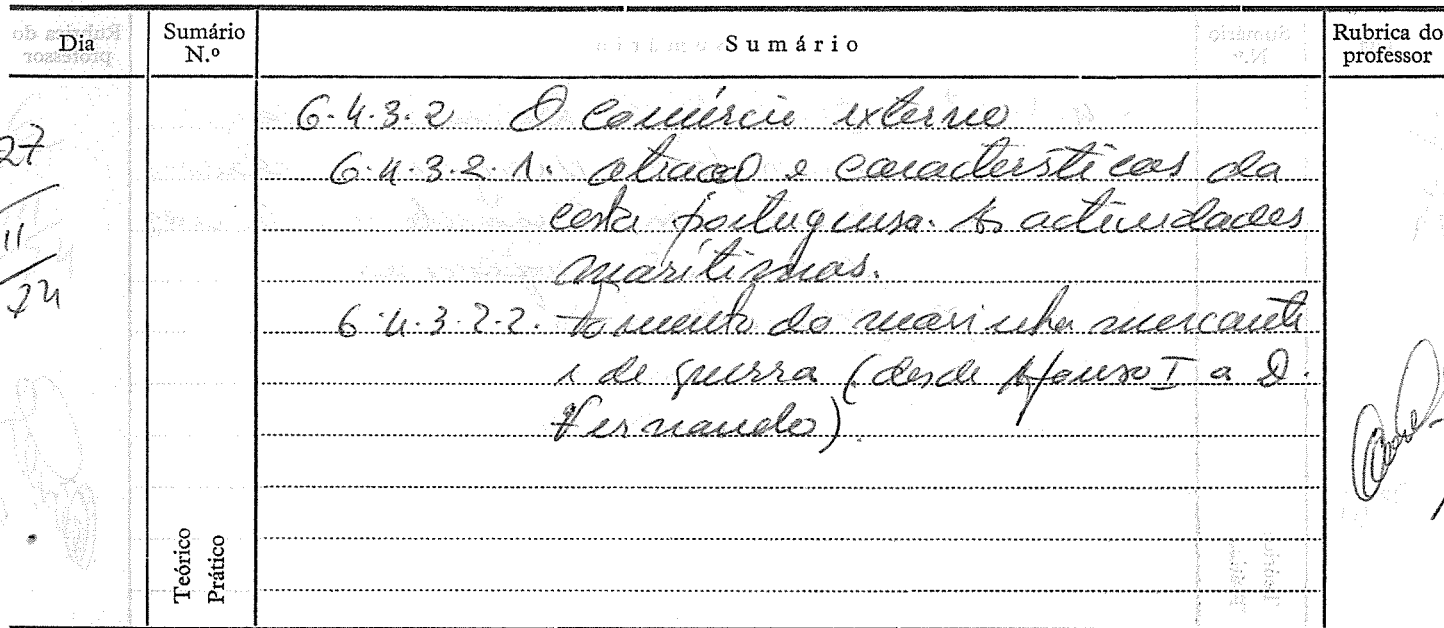 Dia
Sumário N.º
Sumário
Rubrica do professor
27
11
74
6.4.3.2 O comércio externo
6.4.3.2.1. e características da
costa portuguesa. As actividades
marítimas.
6.4.3.2.2. Fomento da marinha mercante
e de guerra (desde Afonso I a D.
Fernando)
Teórico
Prático